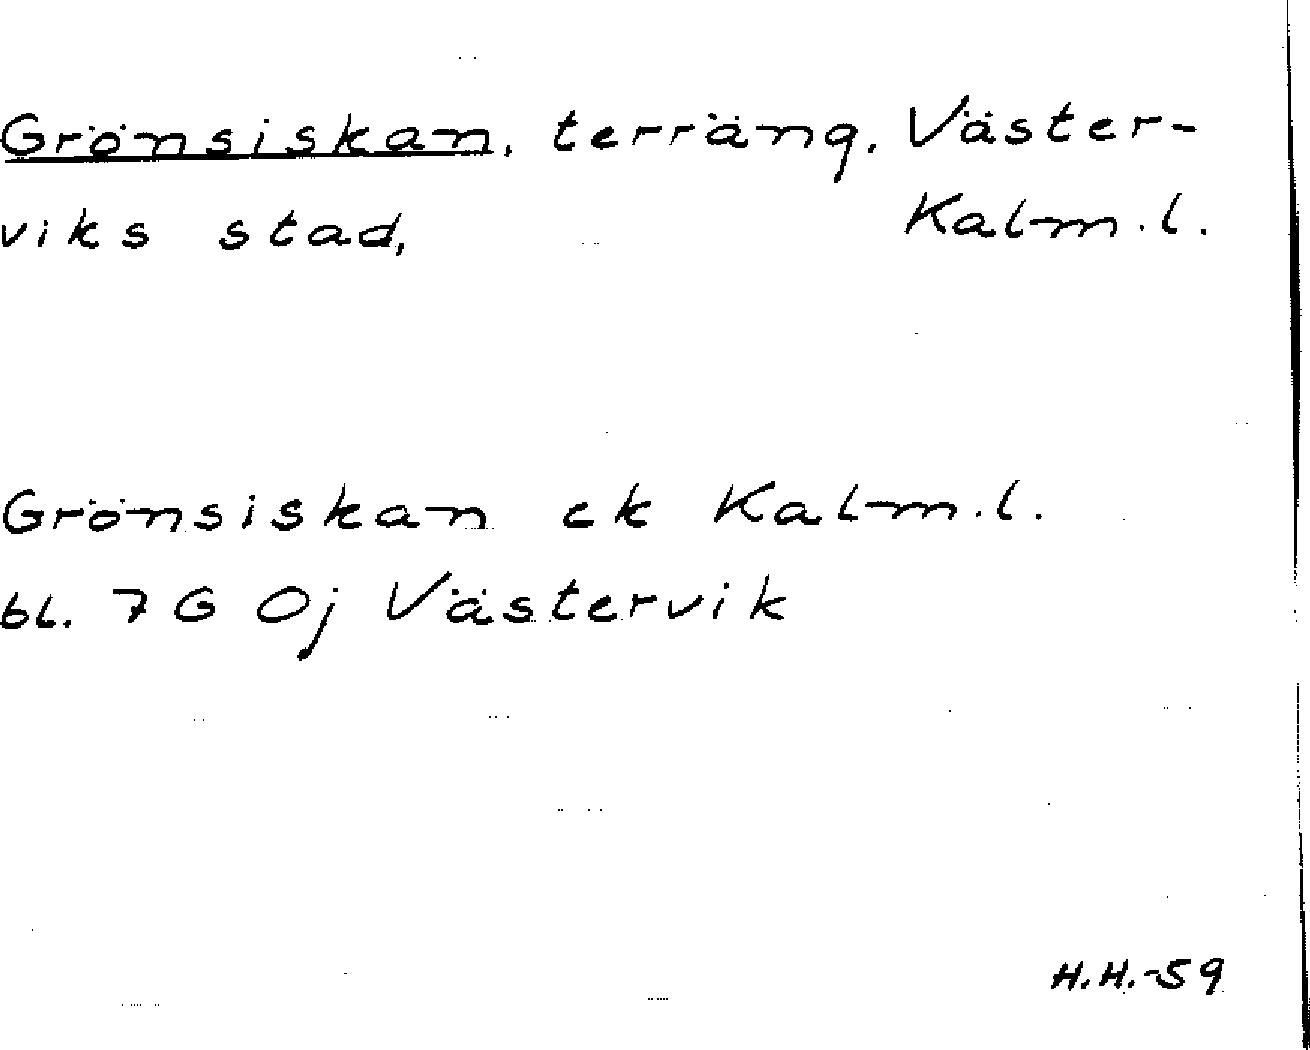 Grönsiskan, terräng, Väster-
viks stad, Kalm.l.
Grönsiskan ek Kalm.l.
bl. 7 G 0j Västervik
H.H.-59